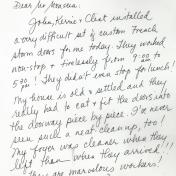 Dear Mr Monsma.
John, Kevin + Clint installed
a very difficult set of custom French
storm doors for me today. They worked
non-stop + tirelessly from 9:00 am to
5:00 pm! They didn't even stop for lunch!
My house is old & settled and they
really had to cut & fit the doors into
the doorway piece by piece. I've never
seen such a neat cleanup, too!
My foyer was cleaner when they
left than when they arrived!!!
They are marvelous workers!